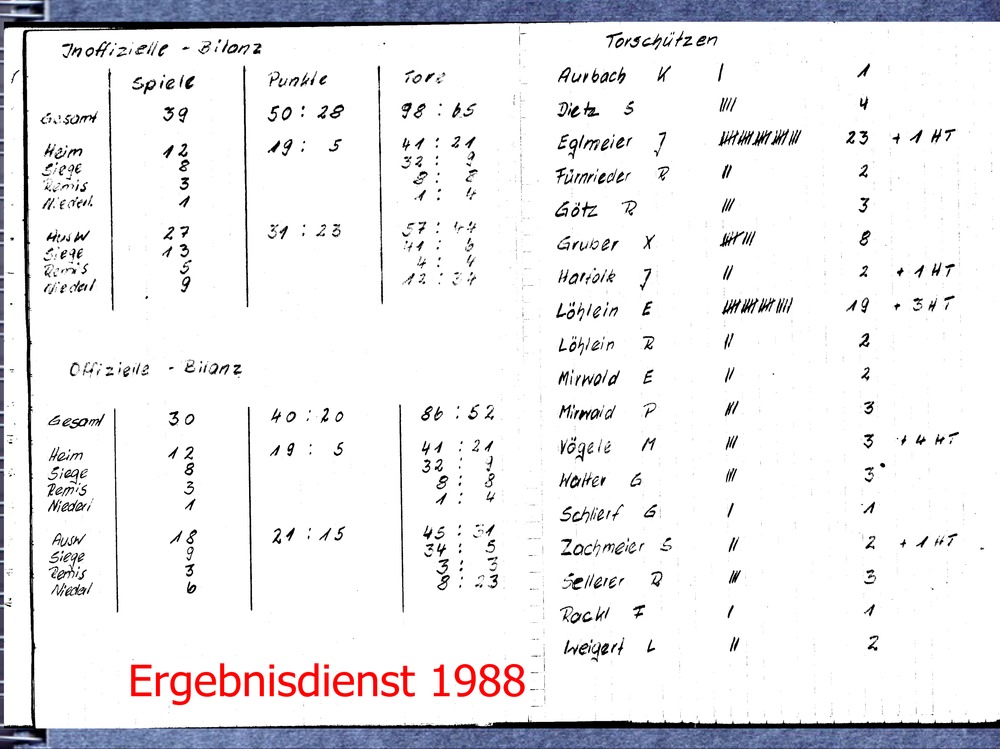 Inoffizielle - Bilanz
Spiele Punkte Tore
Gesamt 39 50 : 28 98 : 65
Heim 12 19 : 5 41 : 21
Siege 8 32 : 9
Remis 3 8 : 8
Niederl. 1 1 : 4
Ausw 27 31 : 23 57 : 44
Siege 13 41 : 6
Remis 5 4 : 4
Niederl 9 12 : 34
Offizielle - Bilanz
Gesamt 30 40 : 20 86 : 52
Heim 12 19 : 5 41 : 21
Siege 8 32 : 9
Remis 3 8 : 8
Niederl 1 1 : 4
Ausw 18 21 : 15 45 : 31
Siege 9 34 : 5
Remis 3 3 : 3
Niederl 6 8 : 23
Ergebnisdienst 1988
Torschützen
Aurbach K 1
Dietz S 4
Eglmeier J 23 + 1 HT
Fürnrieder R 2
Götz R 3
Gruber X 8
J 2 + 1 HT
Löhlein E 19 + 3 HT
Löhlein R 2
Mirwald E 2
Mirwald P 3
Vögele M 3 + 4 HT
Walter G 3
Schlierf G 1
Zachmeier S 2 + 1 HT
Sellerer R 3
Rackl F 1
Weigert L 2